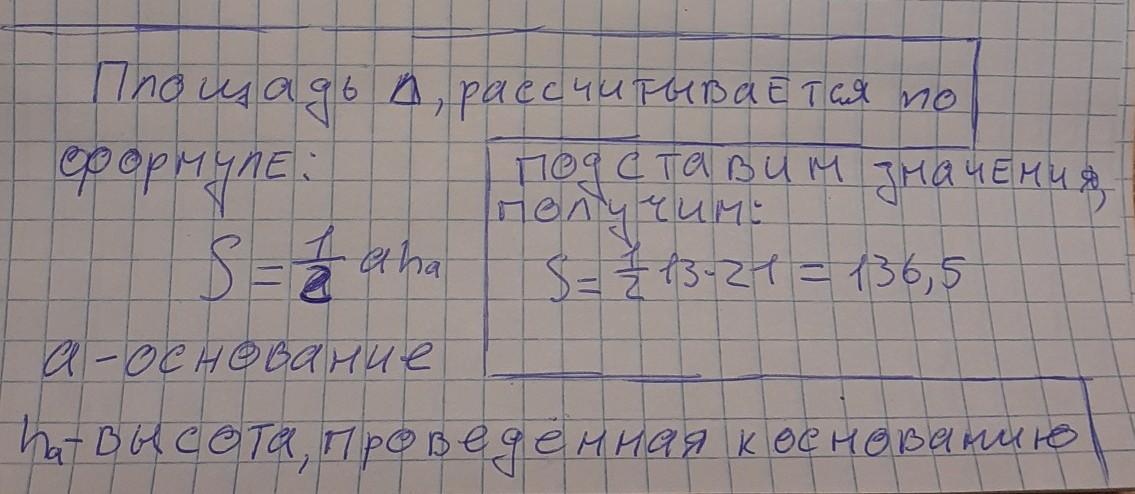 Площадь Δ, рассчитывается по
формуле:
S = 1/2 ah_a
a - основание
h_a - высота, проведённая к основанию
подставим значения,
получим:
S = 1/2 13·21 = 136,5